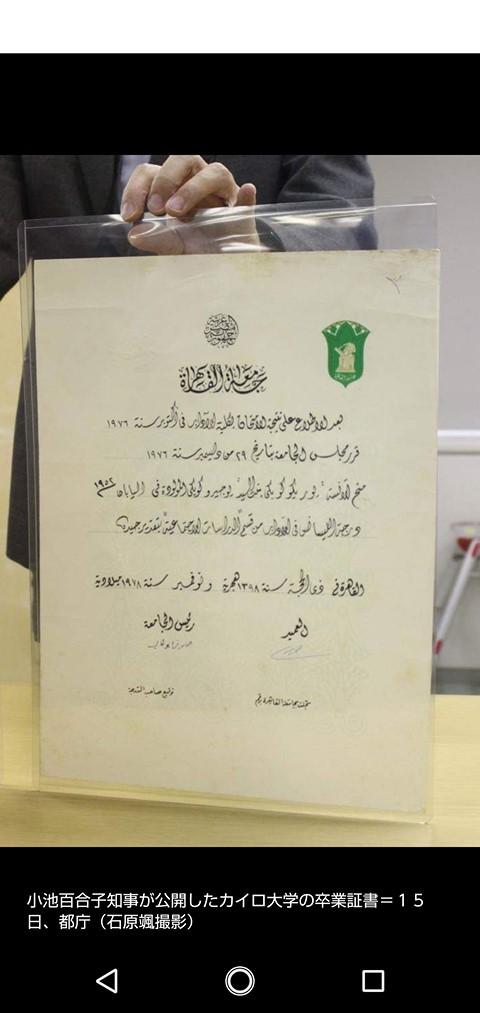 جامعة القاهرة
بعد الاطلاع على نتيجة الامتحان بكلية الآداب فى أكتوبر سنة ١٩٧٦
قرر مجلس الجامعة بتاريخ ٢٩ من ديسمبر سنة ١٩٧٦
منح الآنسة / يوريكو كويكى السيد يوجيرو كويكى المولودة فى اليابان ١٩٥٢
درجة الليسانس فى الآداب من قسم الدراسات الاجتماعية بتقدير جيد
القاهرة فى ذى الحجة سنة ١٣٩٨ هجرية و نوفمبر سنة ١٩٧٨ ميلادية
العميد رئيس الجامعة
توقيع صاحب
小池百合子知事が公開したカイロ大学の卒業証書＝１５
日、都庁（石原颯撮影）